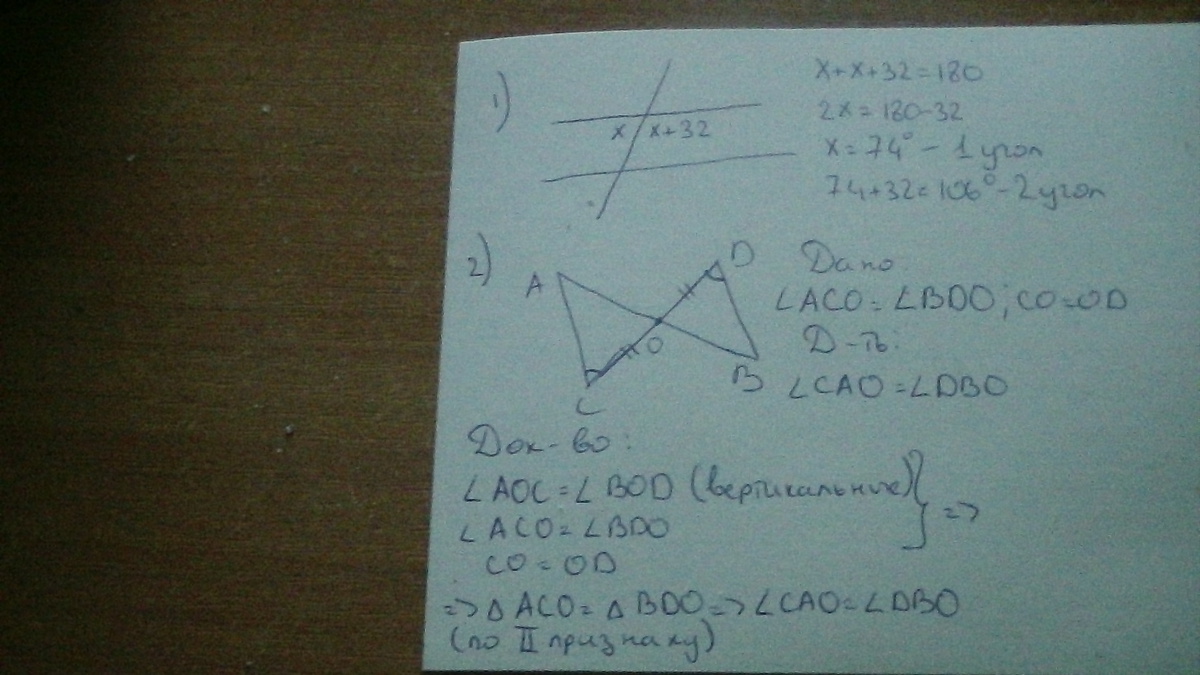 1)
x
x+32
x+x+32=180
2x=180-32
x=74° - 1 угол
74+32=106° - 2 угол
2)
A
D
O
B
C
Дано
∠ACO=∠BDO; CO=OD
Д-ть:
∠CAO=∠DBO
Док-во:
∠AOC=∠BOD (вертикальные)
∠ACO=∠BDO
CO=OD
} =>
=> △ACO=△BDO=>∠CAO=∠DBO
(по II признаку)